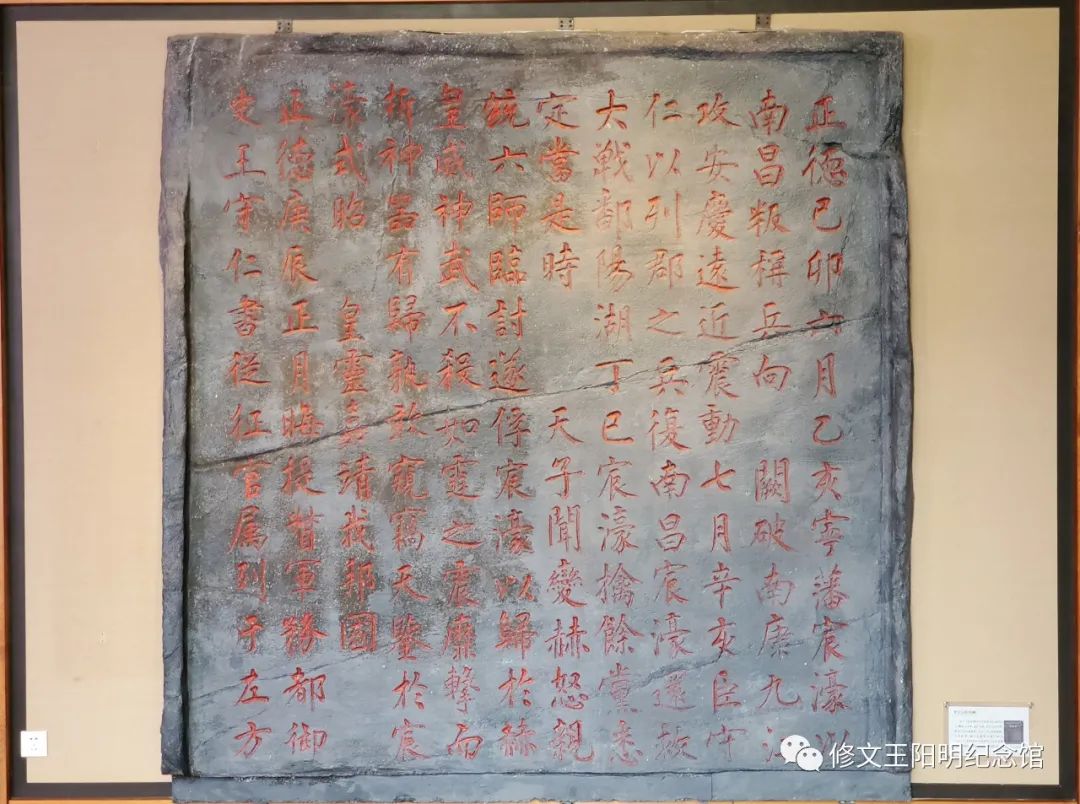 正德己卯六月乙亥寧藩宸濠以
南昌叛稱兵向　闕破南康九江
攻安慶遠近震動七月辛亥臣守
仁以列郡之兵復南昌宸濠還救
大戰鄱陽湖丁巳宸濠擒餘黨悉
定當是時　天子聞變赫怒親
統六師臨討遂俘宸濠以歸於赫
皇威神武不殺如霆之震靡擊而
折神器有歸孰敢窺竊天鑒於宸
濠式昭　皇靈嘉靖我邦國
正德庚辰正月晦提督軍務都御
史王守仁書從征官属列于左方
修文王阳明纪念馆